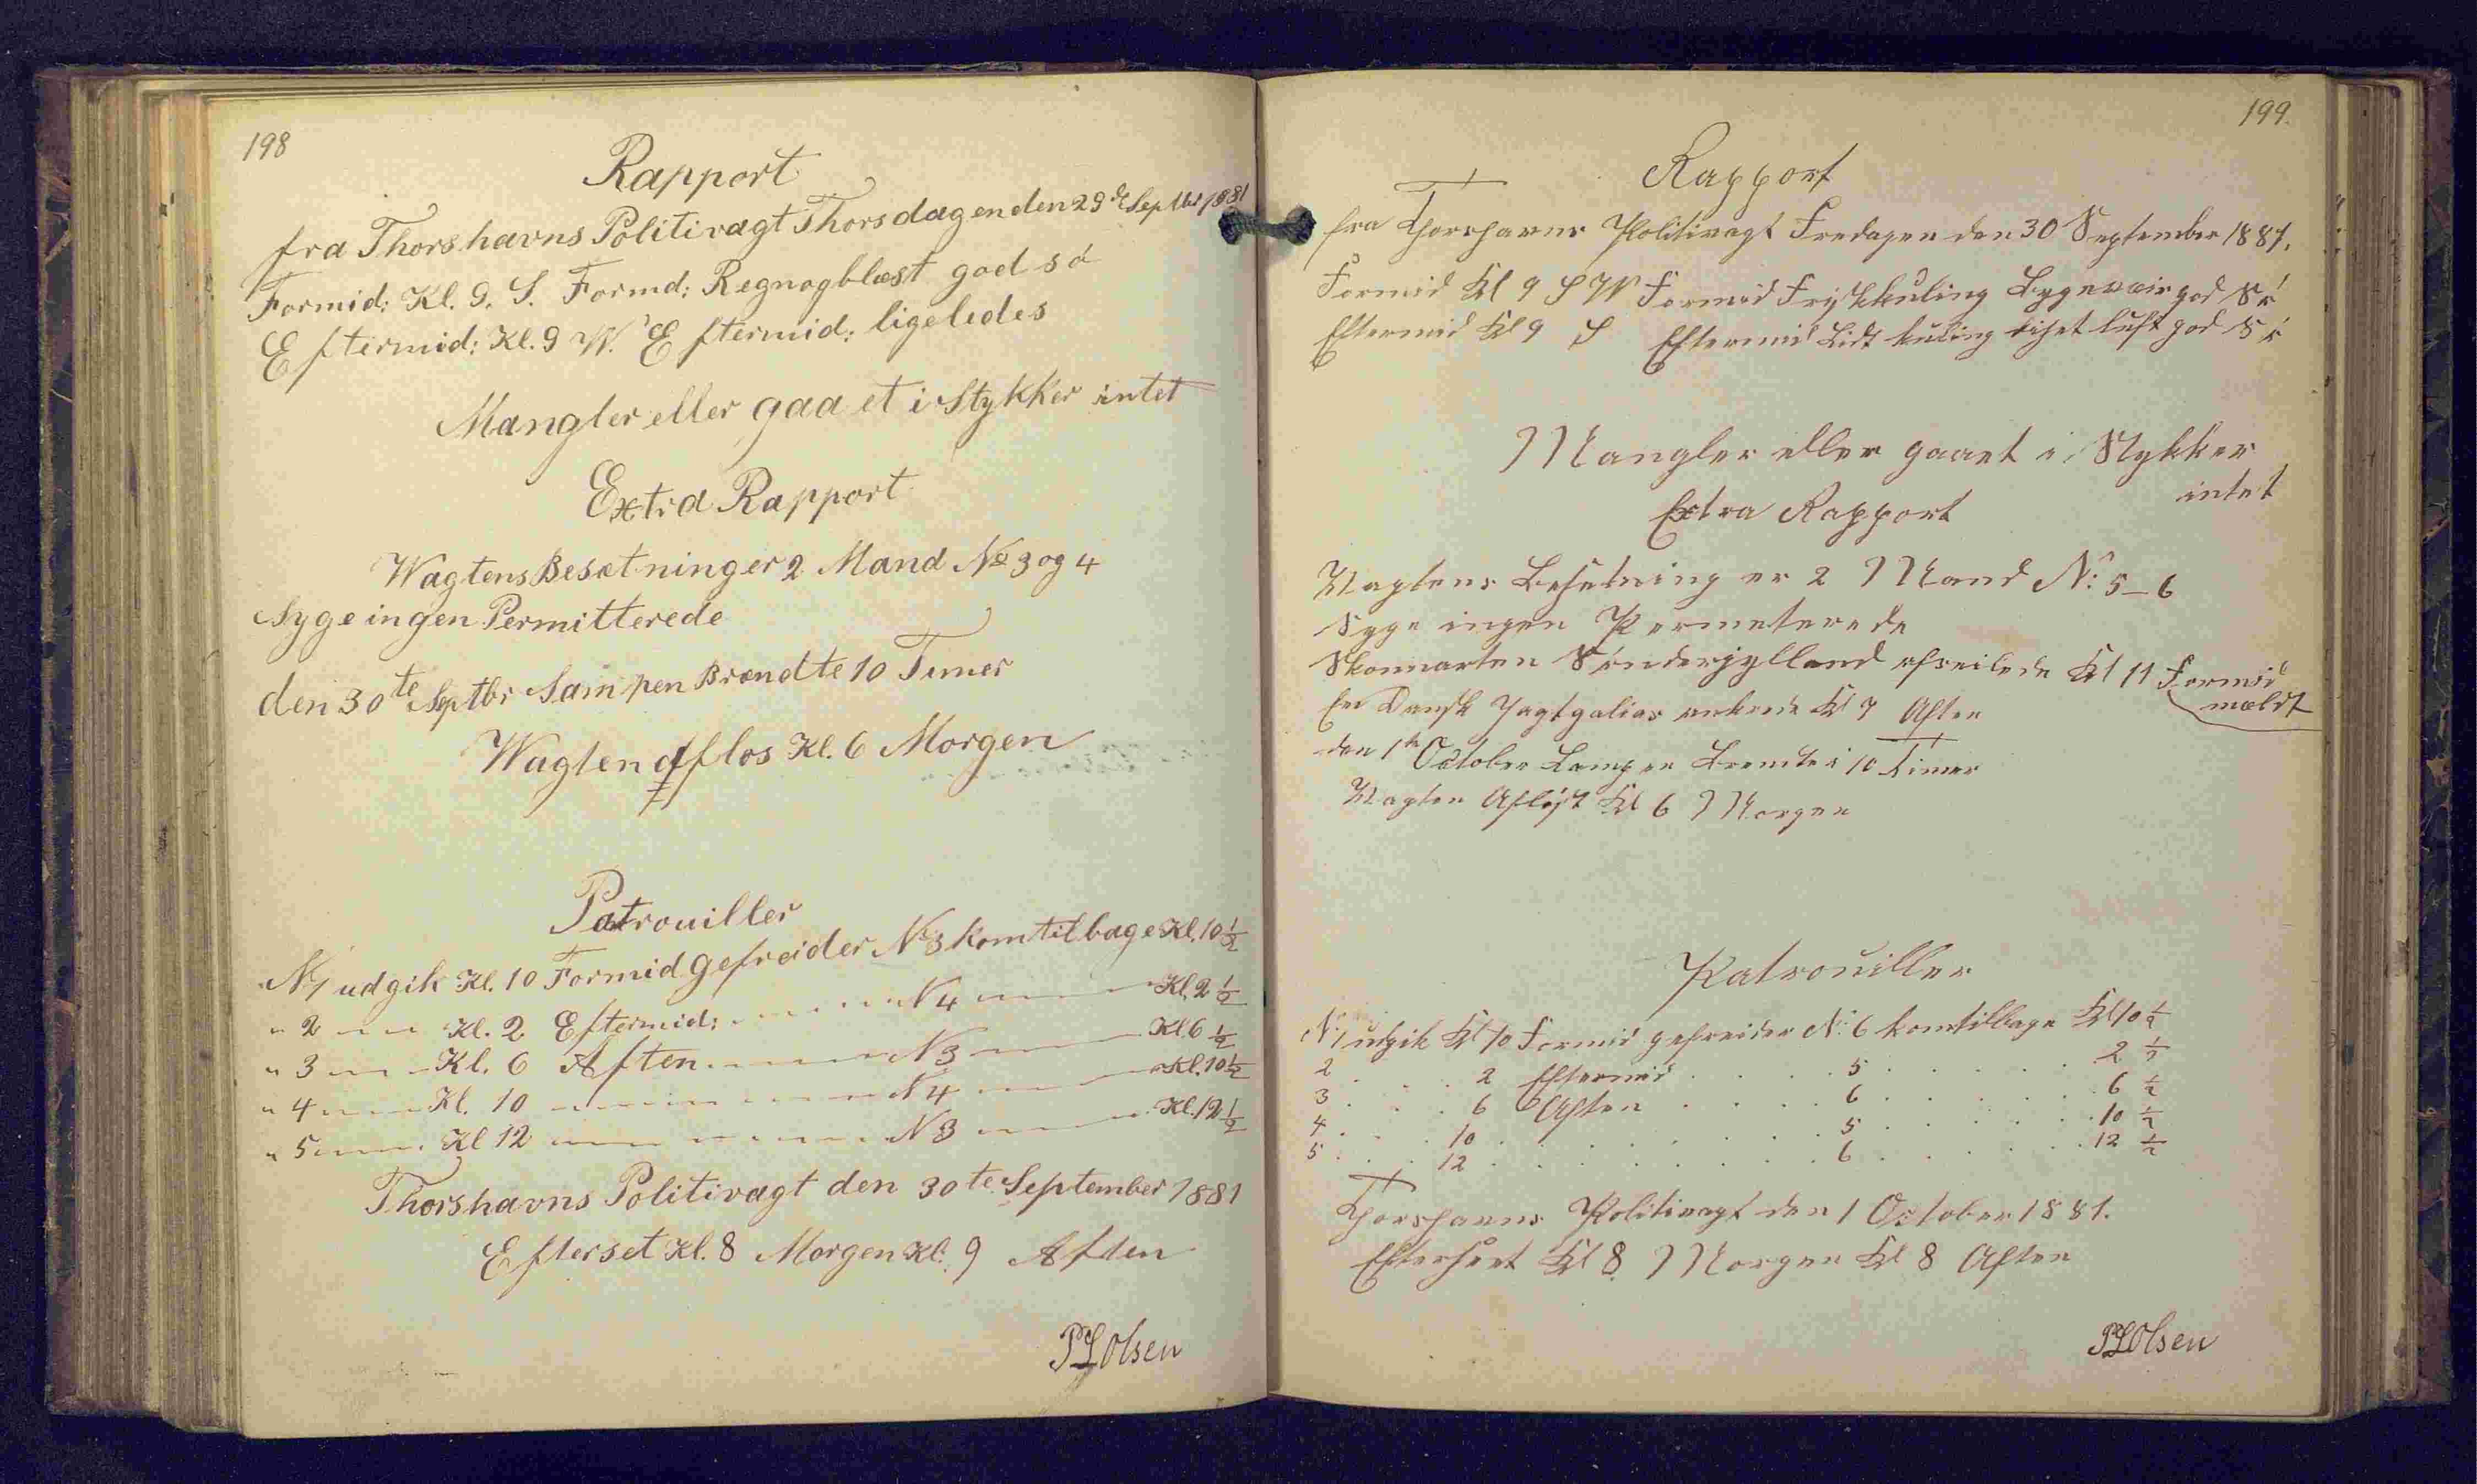 198
Rapport
fra Thorshavns Politivagt Thorsdagen den 29de Septbr 1881
Formid: Kl. 9. S. Formd: Regn og blæst god sö
Eftermid: Kl. 9 W. Eftermid: ligeledes
Mangler eller gaaet i Stykker intet
Extra Rapport
Wagtens Besætning er 2 Mand No 3 og 4
Syge ingen Permitterede
den 30te Septbr Lampen Brændte 10 Timer
Wagten afløs Kl. 6 Morgen
Patrouiller
N1 udgik Kl. 10 Formid gefreider No 3 kom tilbage Kl. 10½
" 2 — — Kl. 2 Eftermid: — — — N 4 — — Kl. 2½
" 3 — — Kl. 6 Aften — — — N 3 — — Kl. 6½
" 4 — — Kl. 10 — — — N 4 — — Kl. 10½
" 5 — — Kl 12 — — — N 3 — — Kl. 12½
Thorshavns Politivagt den 30te September 1881
Efterset Kl. 8 Morgen Kl. 9 Aften
Olsen
199.
Rapport
fra Thorshavns Politivagt Fredagen den 30 September 1881.
Formid Kl 9 S W Formid Frijskkuling Bygevair god Sö
Eftermid Kl 9 S Eftermid Lidt kuling luft god Sö
Mangler eller gaaet i Stykker
intet
Extra Rapport
Wagtens Besetning er 2 Mand No: 5_6
Syge ingen Permeterede
Skonnarten Sönderjylland afseilede Kl 11 Formid
En Dansk Jagtgalias ankrede Kl 7 Aften
mældt
den 1te October Lampen Brente i 10 Timer
Wagten Afløst Kl 6 Morgen
Patrouiller
N: 1 udgik Kl 10 Formid gefreider N: 6 kom tilbage Kl 10½
2 . . . 2 Eftermid . . . . 5 . . . . . 2½
3 . . . 6 Aften . . . . 6 . . . . . 6½
4 . . . 10 . . . . . . . 5 . . . . . 10½
5 . . . 12 . . . . . . . 6 . . . . . 12½
Thorshavns Politivagt den 1 October 1881.
Efterseet Kl 8 Morgen Kl 8 Aften
Olsen